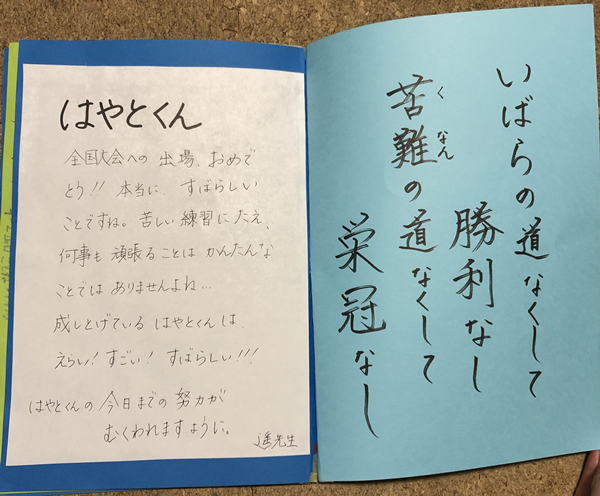 はやとくん
全国大会への 出場、おめで
とう!! 本当に、すばらしい
ことですね。苦しい練習にたえ、
何事も 頑張ることは かんたんな
ことでは ありませんよね…
成しとげている はやとくんは、
えらい! すごい! すばらしい!!!
はやとくんの 今日までの 努力が
むくわれますように。
遥先生
いばらの道なくして
勝利なし
苦難の道なくして
くなん
栄冠なし